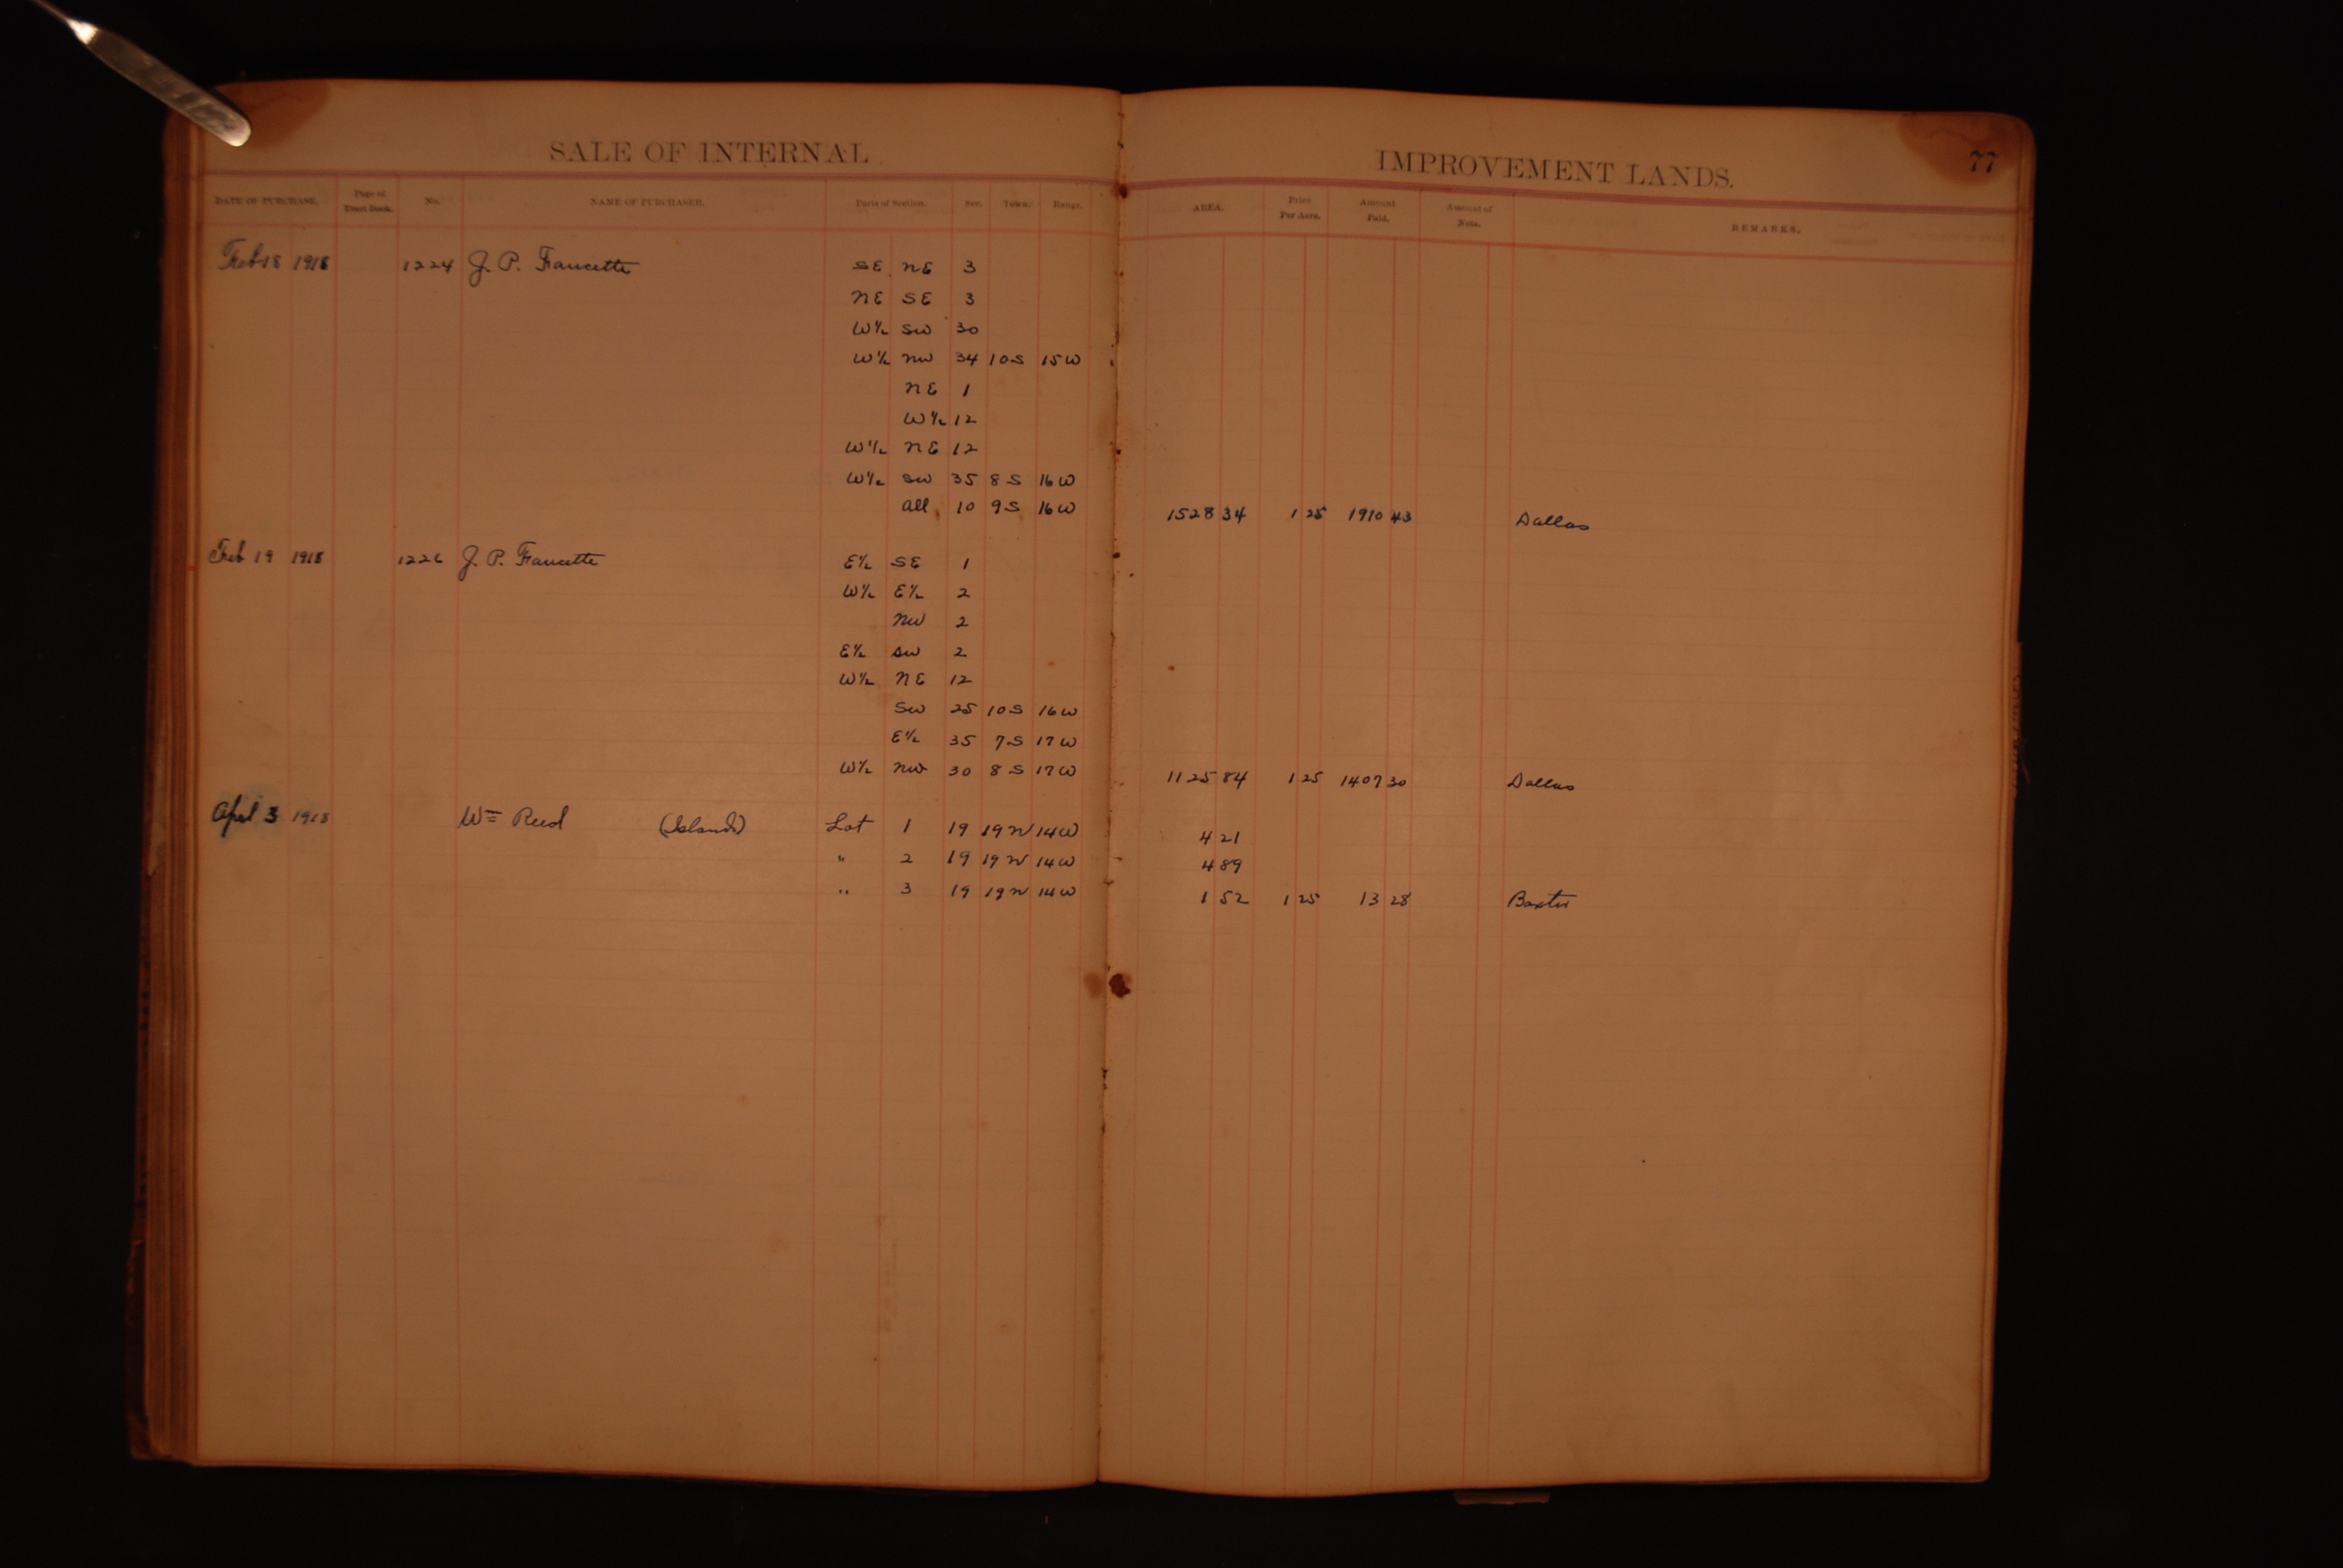 SALE OF INTERNAL IMPROVEMENT LANDS. 77
DATE OF PURCHASE. Page of Tract Book. No. NAME OF PURCHASER. Parts of Section. Sec. Town. Range. AREA. Price Per Acre. Amount Paid. Amount of Note. REMARKS.
Feb 18 1918 1224 J. P. Faucette SE NE 3
NE SE 3
W½ SW 30
W½ NW 34 10S 15W
NE 1
W½ 12
W½ NE 12
W½ SW 35 8S 16W
All 10 9S 16W 1528 34 1 25 1910 43 Dallas
Feb 19 1918 1226 J. P. Faucette E½ SE 1
W½ E½ 2
NW 2
E½ SW 2
W½ NE 12
SW 25 10S 16W
E½ 35 7S 17W
W½ NW 30 8S 17W 1125 84 1 25 1407 30 Dallas
April 3 1918 Wm Reed (Islands) Lot 1 19 19N 14W 4 21
" 2 19 19N 14W 4 89
" 3 19 19N 14W 1 52 1 25 13 28 Baxter